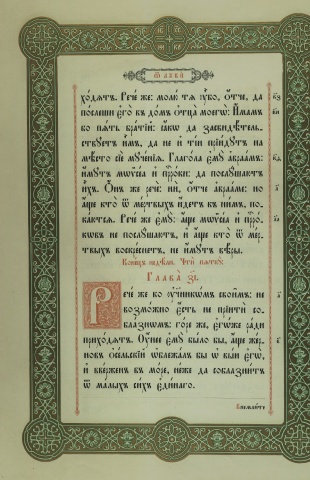 Ѿ лꙋкѝ
хо́дѧтъ. Рече́ же: молю́ тѧ ᲂу҆̀бо, ѻ҆́тче, да
по́слеши є҆го̀ въ до́мъ ѻ҆тца̀ моегѡ̀: И҆́мамъ
бо пѧ́ть бра́тїй: ꙗ҆́кѡ да засвидѣ́тель-
ствꙋетъ и҆̀мъ, да не и҆ ті́и прїи́дꙋтъ на
мѣ́сто сїѐ мꙋче́нїѧ. Глаго́ла є҆мꙋ̀ а҆враа́мъ:
и҆́мꙋтъ мѡѷсе́а и҆ прⷪ҇ро́ки: да послꙋ́шаютъ
и҆́хъ. Ѻ҆́нъ же речѐ: нѝ, ѻ҆́тче а҆враа́ме: но
а҆́ще кто̀ ѿ ме́ртвыхъ и҆́детъ къ ни̑мъ, по-
ка́ютсѧ. Рече́ же є҆мꙋ̀: а҆́ще мѡѷсе́а и҆ прⷪ҇ро́-
кѡвъ не послꙋ́шаютъ, и҆ а҆́ще кто̀ ѿ ме́р-
твыхъ воскре́снетъ, не и҆́мꙋтъ вѣ́ры.
Коне́цъ недѣ́ли. Чтѝ пѧткꙋ̀:
Глава̀ з҃і.
Рече́ же ко ᲂу҆чн҃кѡ́мъ свои̑мъ: не
возмо́жно є҆́сть не прїитѝ со-
бла́знѡмъ: го́ре же, є҆гѡ́же ра́ди
прихо́дѧтъ. Оу҆́нее є҆мꙋ̀ бы́ло бы, а҆́ще же́р-
новъ ѻ҆се́льскїй ѡ҆блежа́лъ бы ѡ҆ вы́и є҆гѡ̀,
и҆ вве́рженъ въ мо́ре, не́же да соблазни́тъ
ѿ ма́лыхъ си́хъ є҆ди́наго.
Внема́йте